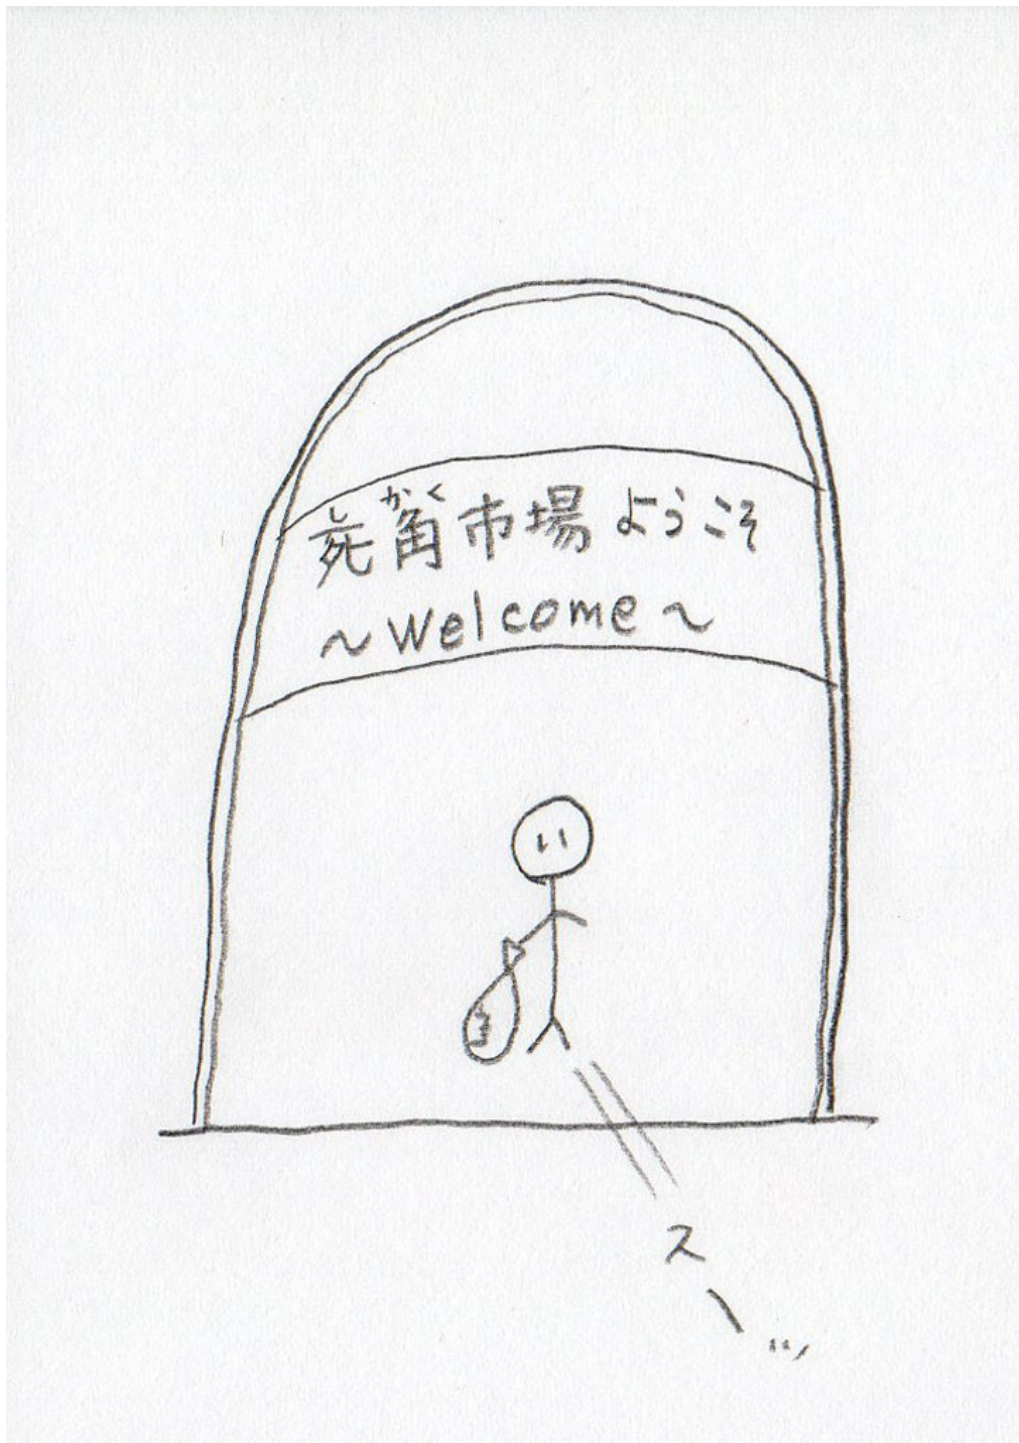 死角市場ようこそ
~Welcome~
スーッ